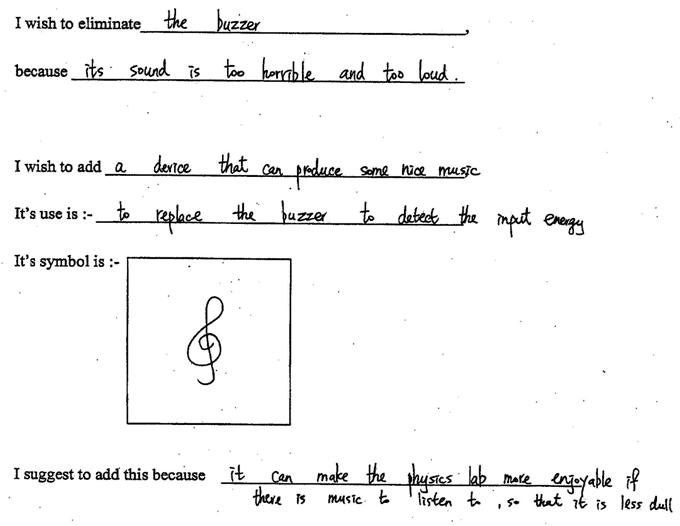 I wish to eliminate the buzzer,
because its sound is too horrible and too loud.
I wish to add a device that can produce some nice music
It's use is :- to replace the buzzer to detect the input energy
It's symbol is :-
I suggest to add this because it can make the physics lab more enjoyable if
there is music to listen to, so that it is less dull